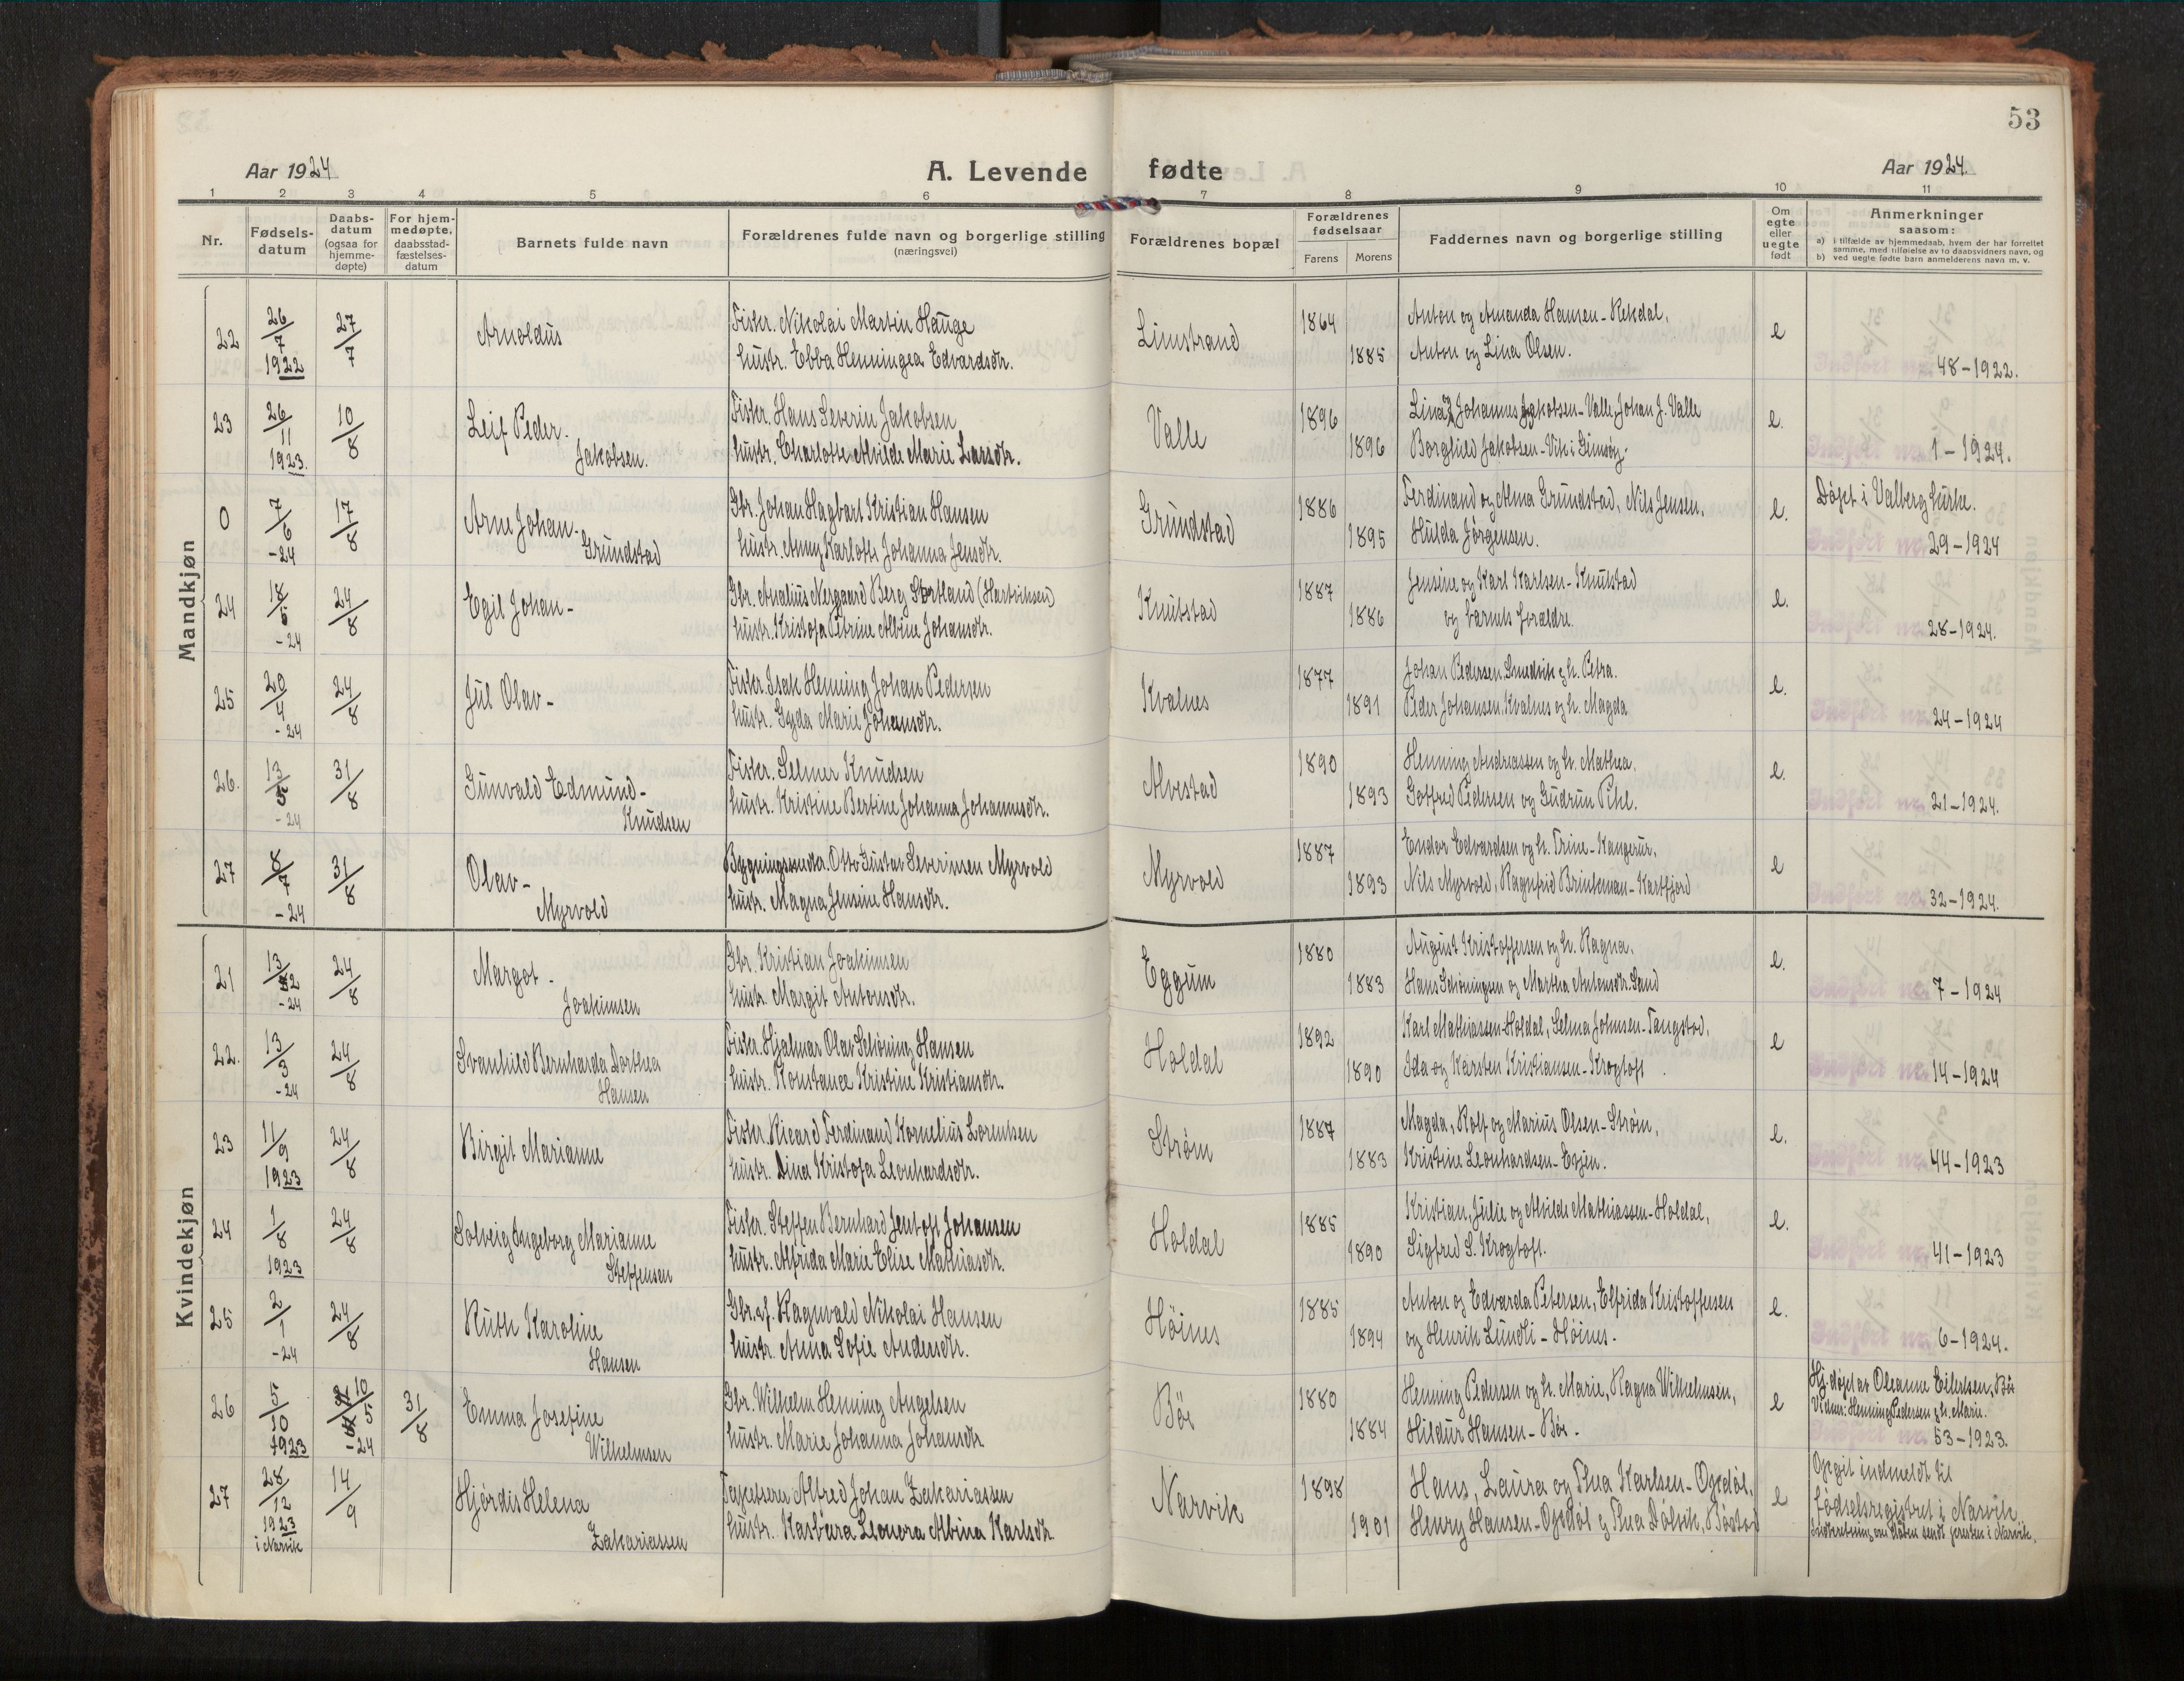 53
Aar 1924
A. Levende fødte
Aar 1924
1 2 3 4 5 6 7 8 9 10 11
Nr.
Fødsels-
datum
Daabs-
datum
(ogsaa for
hjemme-
døpte)
For hjem-
medøpte,
daabsstad-
fæstelses-
datum
Barnets fulde navn
Forældrenes fulde navn og borgerlige stilling
(næringsvei)
Forældrenes bopæl
Forældrenes
fødselsaar
Farens Morens
Faddernes navn og borgerlige stilling
Om
egte
eller
uegte
født
Anmerkninger
saasom:
a) i tilfælde av hjemmedaab, hvem der har forrettet
samme, med tilføielse av to daabsvidners navn, og
b) ved uegte fødte barn anmelderens navn m. v.
Mandkjøn
22 26/7 1922 27/7 Arnoldus
Fisker. Nikolai Martin Hauge
hustr. Ebba Henningea Edvardsdtr.
Limstrand 1864 1885
Anton og Amanda Hansen - Rekdal,
Anton og Lina Olsen.
e 48-1922.
23 26/11 1923. 10/8 Leif Peder.
Jakobsen.
Fisker. Hans Severin Jakobsen
hustr. Charlotte Alvilde Marie Larsdtr.
Valle 1896 1896
Lina Johannes Jakobsen - Valle, Johan J. Valle
Borghild Jakobsen - Vik i Gimsøy.
e. 1-1924.
0 7/6 -24 17/8 Arne Johan -
Grundstad
Gbr. Johan Hagbart Kristian Hansen
hustr. Anny Karlotte Johanna Jensdtr.
Grundstad 1886 1895
Ferdinand og Alma Grundstad, Nils Jensen,
Hulda Jørgensen.
e. Døpt i Valberg kirke.
29-1924
24 18/5 -24 24/8 Egil Johan -
Gbr. Analius Nergaard Berg Stortland (Hartviksen)
hustr. Kristofa Petrine Albine Johansdtr.
Knutstad 1887 1886
Jensine og Karl Karlsen - Knutstad
og barnets forældre.
e. 28-1924.
25 20/4 -24 24/8 Jul Olav -
Fisker. Isak Henning Johan Pedersen
hustr. Gyda Marie Johansdtr.
Kvalnes 1877 1891
Johan Pedersen Smedvik og h. Petra.
Peder Johansen Kvalnes og h. Magda
e. 24-1924
26. 13/5 -24 31/8 Gunvald Edmund -
Knudsen
Fisker. Selmer Knudsen
hustr. Kristine Bertine Johanna Johannesdtr.
Alvstad 1890 1893
Henning Andreassen og h. Mathea,
Gotfred Pedersen og Gudrun Pihl.
e. 21-1924.
27 8/7 -24 31/8 Olav -
Myrvold
Otto Gustav Severinsen Myrvold
hustr. Magna Jensine Hansdtr.
Myrvold 1887 1893
Endor Edvardsen og h. Trine - Kangerur,
Nils Myrvold, Ragnfrid Brinkman - Kartfjord
e 32-1924.
Kvindekjøn
21 13/2 -24 24/8 Margot -
Joakimsen
Gbr. Kristian Joakimsen
hustr. Margit Antonsdtr.
Eggum 1880 1883
August Kristoffersen og h. Ragna,
Hans Schøningsen og Martha Antonsdtr. Sand
e. 7-1924
22. 13/3 -24 24/8 Svanhild Bernharda Dorthea
Hansen
Fisker. Hjalmar Olav Schøning Hansen
hustr. Konstance Kristine Kristiansdtr.
Holdal 1892 1890
Karl Mathiassen - Holdal, Selma Johnsen - Tangstad,
Ida og Karsten Kristiansen - Krogtoft
e 14-1924
23 11/9 1923 24/8 Birgit Marianne
Fisker. Ricard Ferdinand Kornelius Lorentsen
hustr. Dina Kristofa Leonhardsdtr.
Strøm 1887 1883
Magda, Rolf og Marius Olsen - Strøm,
Kristine Leonhardsen - Evjen.
e. 44-1923
24 1/8 1923 24/8 Solveig Ingeborg Marianne
Steffensen
Fisker. Steffen Bernhard Jentoft Johansen
hustr. Alfrida Marie Elise Mathiasdtr.
Holdal 1885 1890
Kristian, Julie og Alvilde Mathiassen - Holdal,
Sigfred S. Krogtoft.
e. 41-1923
25 2/1 -24 24/8 Ruth Karoline
Hansen
Gbr. og f. Ragnvald Nikolai Hansen
hustr. Anna Sofie Andersdtr.
Høines 1885 1894
Anton og Edvarda Petersen, Elfrida Kristoffersen
og Henrik Lundli - Høines.
e. 6-1924.
26 5/10 1923 10/5 -24 31/8 Emma Josefine
Wilhelmsen
Gbr. Wilhelm Henning Angelsen
hustr. Marie Johanna Johansdtr
Bør 1880 1884
Henning Pedersen og h. Marie, Ragna Wilhelmsen,
Hildur Hansen - Bør.
e Hj. døpt av Oleanne Eilertsen, Bør
Vidner: Henning Pedersen og h. Marie.
53-1923.
27 28/12 1923 i Narvik 14/9 Hjørdis Helena
Zakariassen
Tapetserer Alfred Johan Zakariassen
hustr. Karbara Leonora Albina Karlsdtr
Narvik 1898 1901
Hans, Laura og Thea Karlsen - Opdøl,
Henry Hansen - Opdøl og Thea Dølvik, Bøstad
e Opgit indmeldt til
fødselsregistret i Narvik
Underretning om dåpen sendt presten i Narvik.